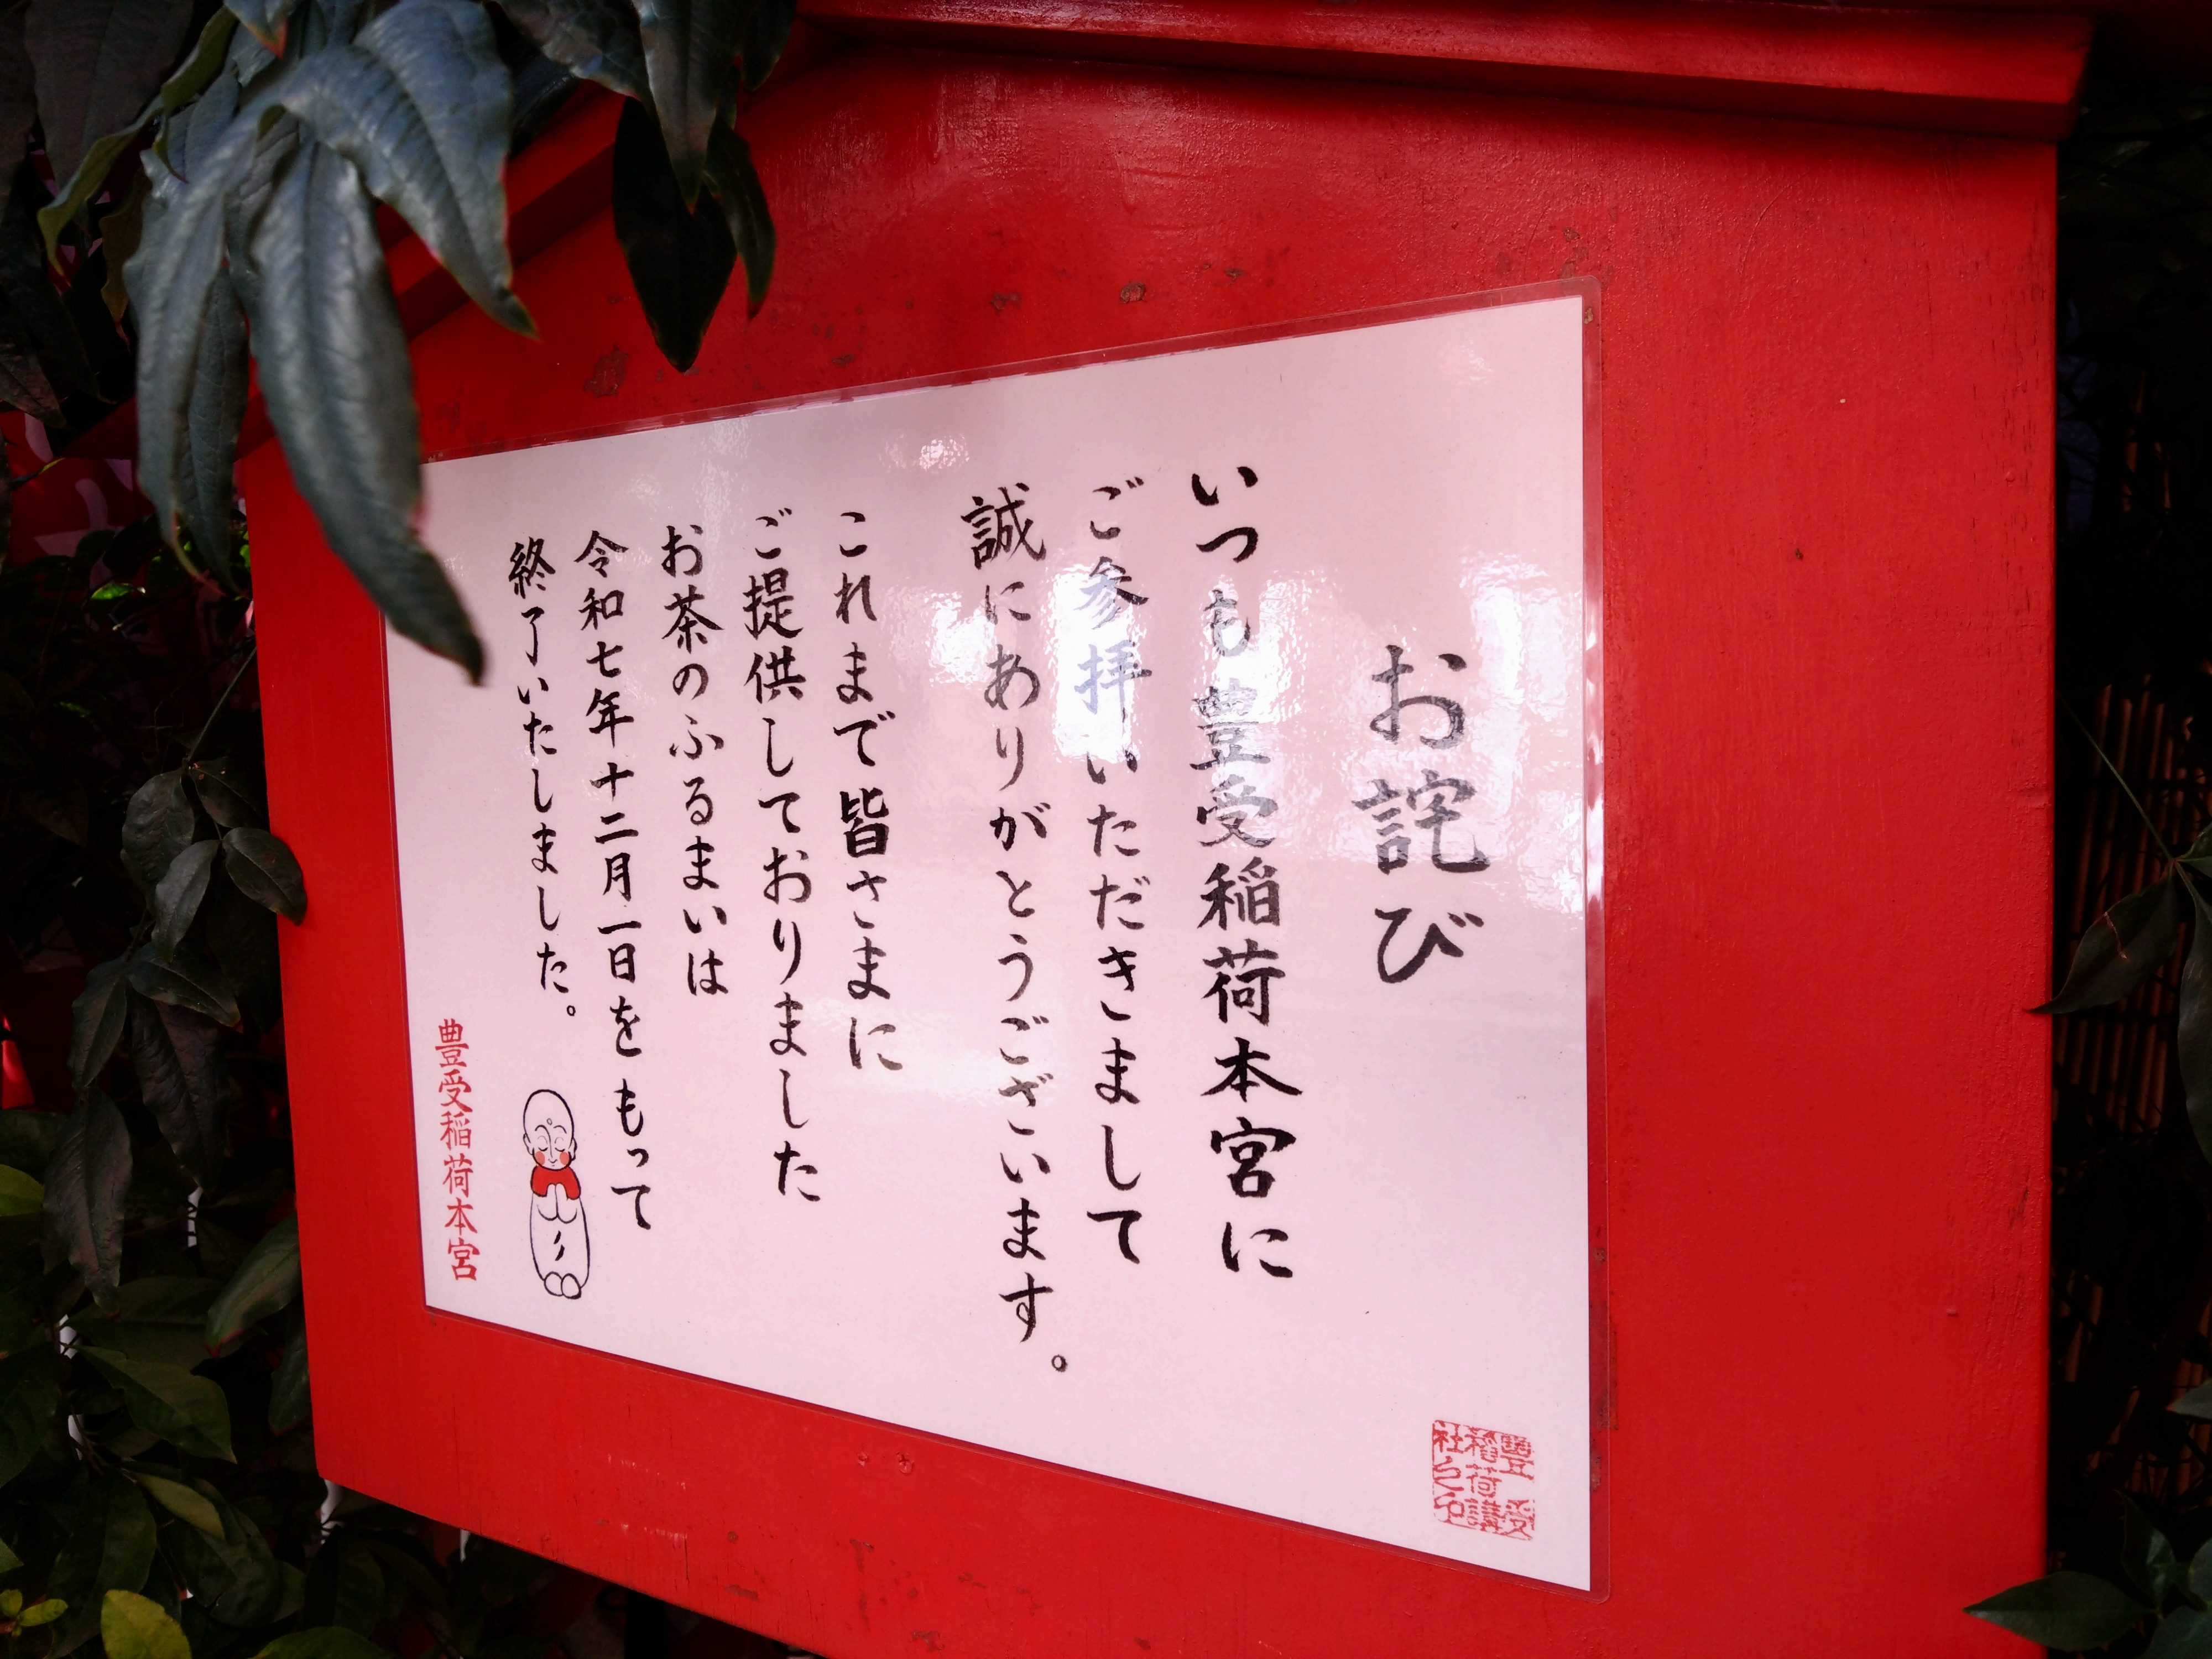 お詫び
いつも豊受稲荷本宮に
ご参拝いただきまして
誠にありがとうございます。
これまで皆さまに
ご提供しておりました
お茶のふるまいは
令和七年十二月一日をもって
終了いたしました。
豊受稲荷本宮
豊受
稲荷講
社之印